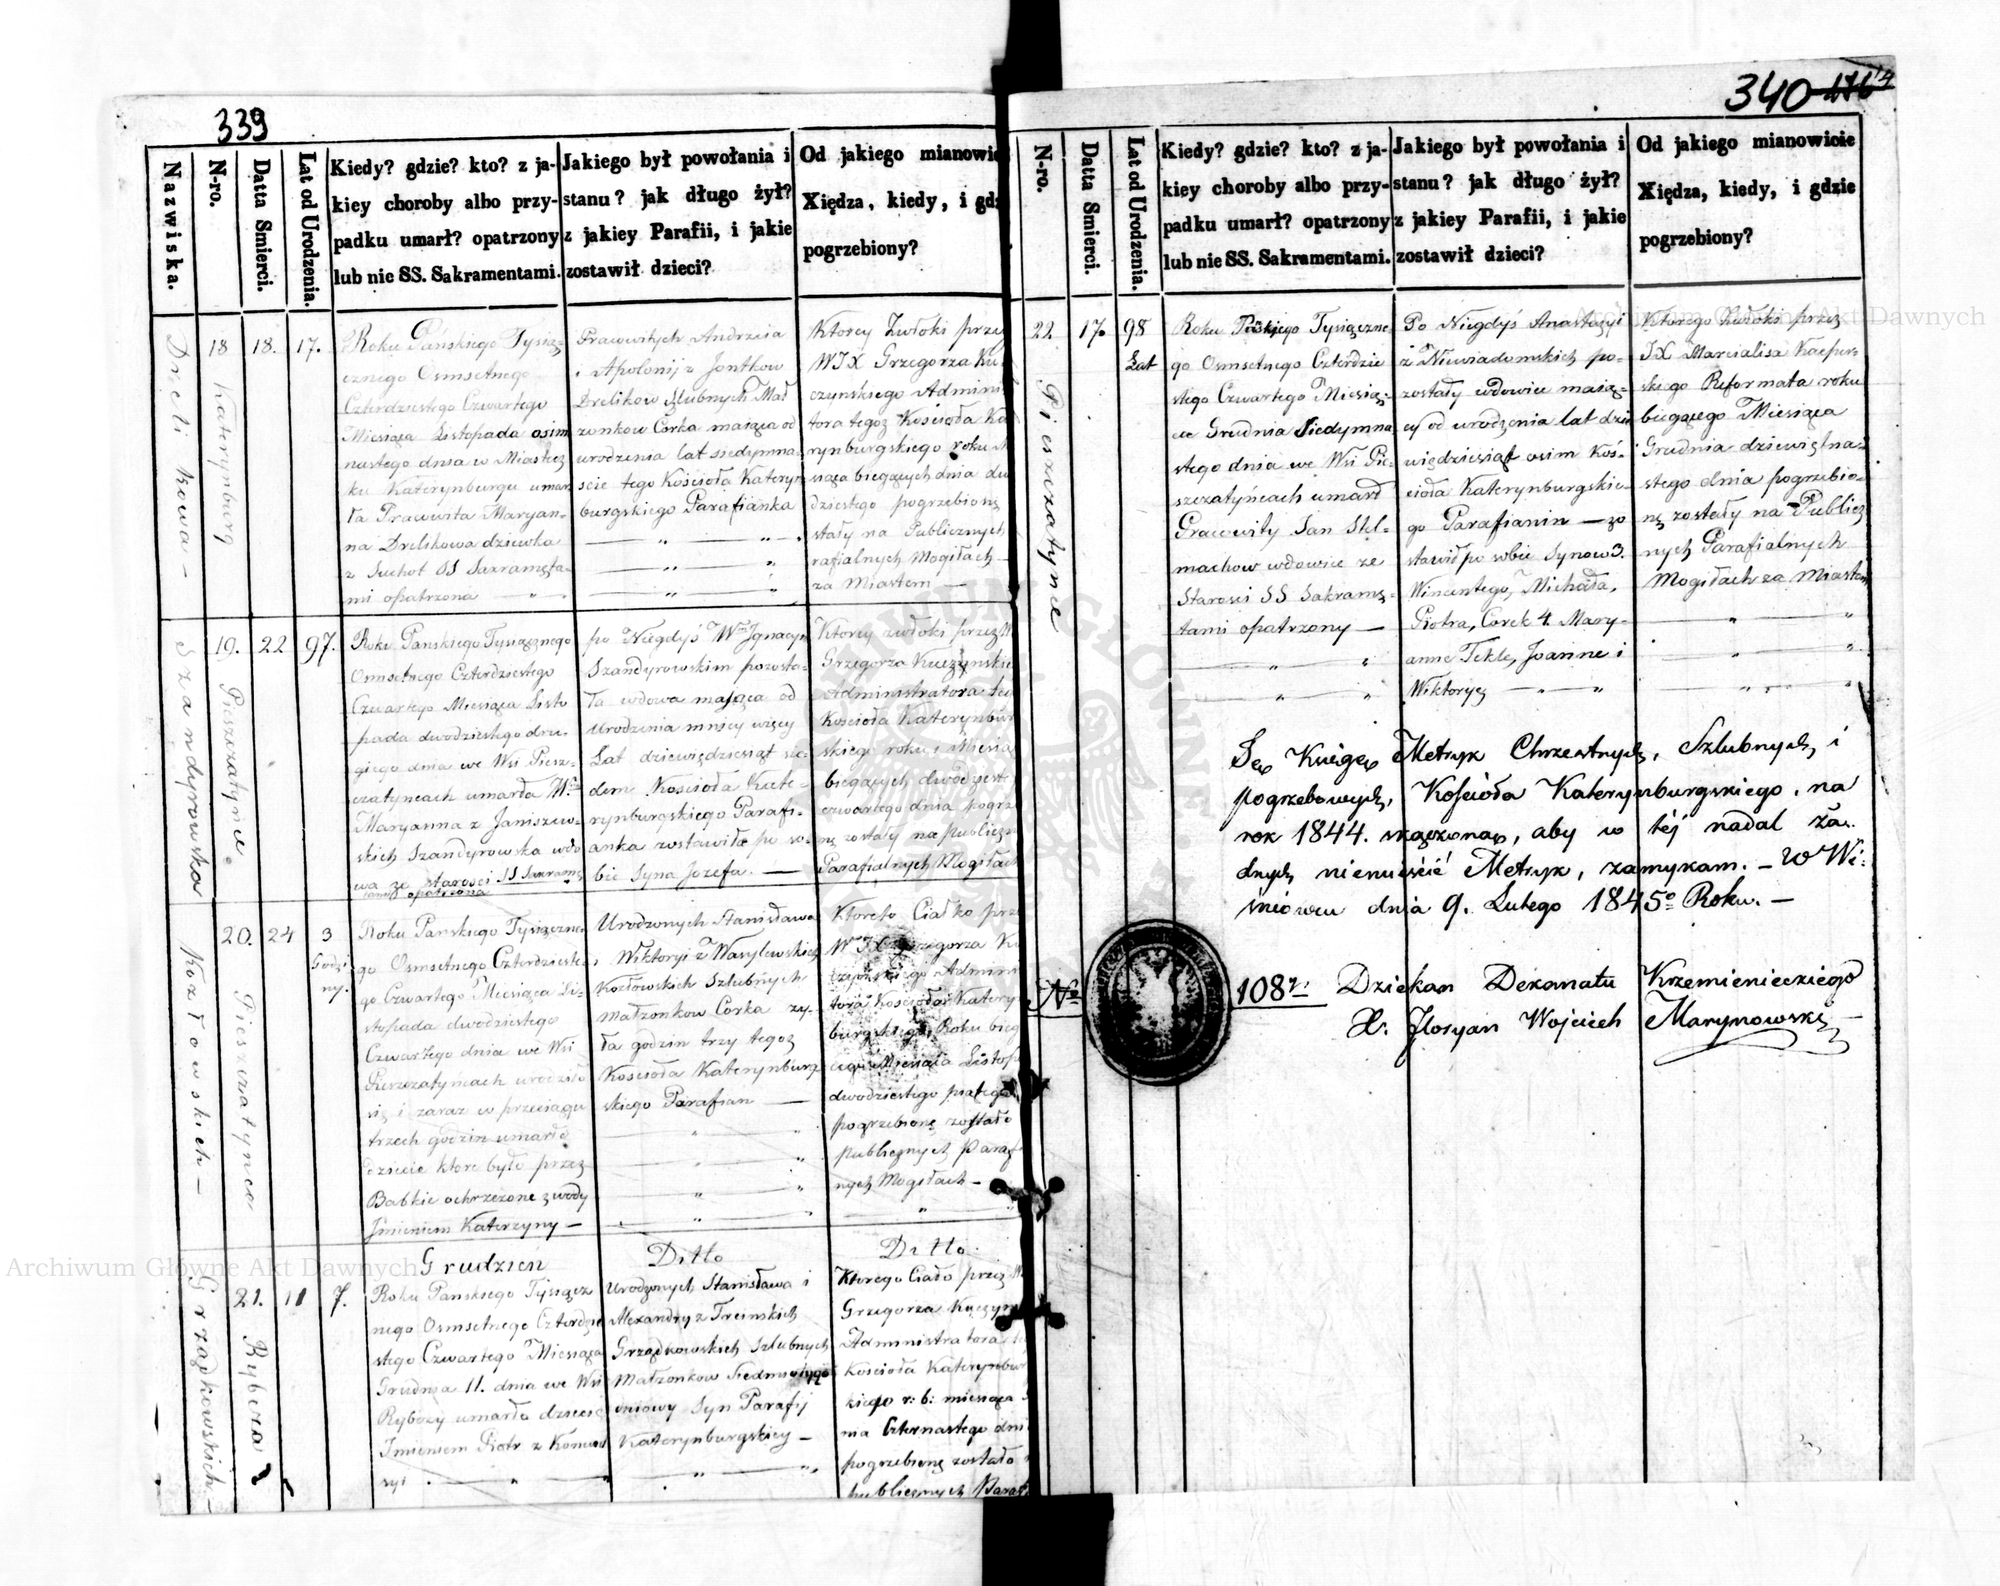 339
Nazwiska.
N-ro.
Datta Smierci.
Lat od Urodzenia.
Kiedy? gdzie? kto? z ja-
kiey choroby albo przy-
padku umarł? opatrzony
lub nie SS. Sakramentami.
Jakiego był powołania i
stanu? jak długo żył?
z jakiey Parafii, i jakie
zostawił dzieci?
Od jakiego mianowic
Xiędza, kiedy, i gdz
pogrzebiony?
Drelikowa -
18
Katerynburg
18.
17.
Roku Pańskiego Tysią
cznego Osmsetnego
Czterdziestego Czwartego
Miesiąca Listopada osim
nastego dnia w Miastecz
ku Katerynburgu umar
ła Pracowita Maryan-
na Drelikowa dziewka
z Suchot SS Sakramęta-
mi opatrzona
Pracowitych Andrzeia
i Apolonij z Jontkow
Drelikow Szlubnych Mał
zonkow Corka maiąca od
urodzenia lat siedymna-
scie tego Kościoła Kateryn
burgskiego Parafianka
Ktorey Zwłoki przez
WJX Grzegorza Ku
czynskiego Admini
tora tegoz Kościoła Ka
rynburgskiego roku
siąca bieżących dnia dw
dziestego pogrzebionę
stały na Publicznych
rafialnych Mogiłach
za Miastem
Szandyrowska
19.
Pieszczatyńce
22
97.
Roku Pańskiego Tysiącznego
Osmsetnego Czterdziestego
Czwartego Miesiąca Listo
pada dwodziestego dru-
giego dnia we Wsi Piesz-
czatyńcach umarła W.na
Maryanna z Janiszew-
skich Szandyrowska wdo
wa ze starosci SS Sakramę
tami opatrzona
po Niegdyś W.m Ignacym
Szandyrowskim pozosta-
ła wdowa maiąca od
Urodzenia mniey więcy
Lat dziewiędziesiąt sie-
dem Kościoła Kate-
rynburgskiego Parafi-
anka zostawiła po so-
bie Syna Jozefa.
Ktorey zwłoki przez W
Grzegorza Kuczynskie
Administratora
Kościoła Katerynbur
skiego roku i Miesią
bieżących dwodzieste
czwartego dnia pogrze
nę zostały na publiczn
Parafialnych Mogiłach
Kozłowskich -
20.
Pieszczatyńce
24
3
Godzi
ny.
Roku Pańskiego Tysiączne
go Osmsetnego Czterdzieste
go Czwartego Miesiąca Li-
stopada dwodziestego
Czwartego dnia we Wsi
Pieszczatyńcach urodziło
się i zaraz w przeciągu
trzech godzin umarło
dziecie ktore było przez
Babkie ochrzczone z wody
Jmieniem Katerzyny -
Urodzonych Stanisława
i Wiktoryi z Wasylewskich
Kozłowskich Szlubnych
Małzonkow Corka ży-
ła godzin trzy tegoz
Kościoła Katerynburg
skiego Parafian
Ktoreto Ciałko prze
WJX Grzegorza Ku
czynskiego Admini
tora Kościoła Kateryn
burgskiego Roku bież
cego Miesiąca Listop
dwodziestego piątego
pogrzebionę zostało
publicznych Paraf
nych Mogiłach -
Grudzień
Ditto
Ditto.
Grządkowskich -
21.
Rybcza
11
7.
Roku Pańskiego Tysiącz
nego Osmsetnego Czterdzie
stego Czwartego Miesiąca
Grudnia 11. dnia we Wsi
Rybczy umarło dziecie
Imieniem Piotr z Konwul
syi
Urodzonych Stanisława i
Alexandry z Trcinskich
Grządkowskich Szlubnych
Małzonkow Siedmio
dniowy Syn Parafij
Katerynburgskiey -
Kterego Ciało przez W
Grzegorza Kuczyn
Administratora
Kościoła Katerynbur
kiego r: b: miesiąca
nia Czternastego dni
pogrzebionę zostało
publicznych Paraf
340
N-ro.
Datta Smierci.
Lat od Urodzenia.
Kiedy? gdzie? kto? z ja-
kiey choroby albo przy-
padku umarł? opatrzony
lub nie SS. Sakramentami.
Jakiego był powołania i
stanu? jak długo żył?
z jakiey Parafii, i jakie
zostawił dzieci?
Od jakiego mianowicie
Xiędza, kiedy, i gdzie
pogrzebiony?
22
Pieszczatyńce
17.
98
Lat
Roku Pańskiego Tysiączne
go Osmsetnego Czterdzie
stego Czwartego Miesią-
ca Grudnia Siedymna
stego dnia we Wsi Pie-
szczatyńcach umarł
Pracowity Jan Stel-
machow wdowiec ze
Starosci SS Sakramę-
tami opatrzony
Po Niegdyś Anastazyi
z Niewiadomskich po-
zostały wdowiec maią-
cy od urodzenia lat dzie
więdziesiąt osim Koś-
cioła Katerynburgskie-
go Parafianin - zo
stawił po sobie Synow 3.
Wincentego, Michała,
Piotra, Corek 4. Mary-
anne Teklę, Joanne i
Wiktoryę
Ktorego Zwłoki przez
JX Marcialisa Kacpur-
skiego Reformata roku
bieżącego Miesiąca
Grudnia dziewiętna-
stego dnia pogrzebio-
nę zostały na Publicz
nych Parafialnych
Mogiłach za Miastem
Sę Księgę Metryk Chrzestnych, Szlubnych, i
pogrzebowych, Kościoła Katerynburgskiego, na
rok 1844. skączoną, aby w téj nadal ża..
dnych nieumieścić Metryk, zamykam. - W Wi-
śniowcu dnia 9. Lutego 1845o Roku. -
No
108
Dziekan Dekanatu Krzemienieckiego
X. Floryan Wojciech Marynowski
Archiwum Główne Akt Dawnych
Archiwum Główne Akt Dawnych